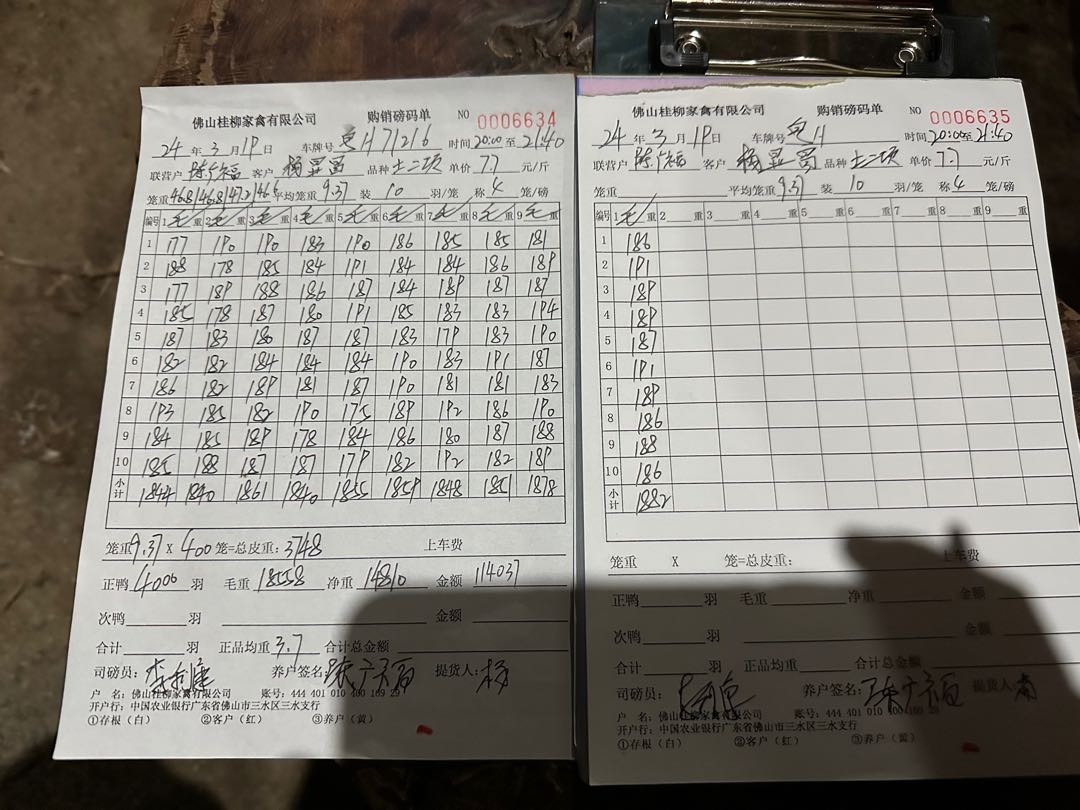 佛山桂柳家禽有限公司 购销磅码单 NO 0006634
24 年 3 月 19 日 车牌号 H71216 时间 20:00 至 21:40
联营户 陈广福 客户 杨显蜀 品种 土二项 单价 7.7 元/斤
笼重 46.8/46.8/47.2/46.6 平均笼重 9.37 装 10 羽/笼 称 4 笼/磅
编号 1 毛 重 2 毛 重 3 毛 重 4 毛 重 5 毛 重 6 毛 重 7 毛 重 8 毛 重 9 毛 重
1 177 190 190 183 190 186 185 185 181
2 188 178 185 184 191 184 184 186 189
3 177 189 188 186 187 184 189 187 187
4 185 178 187 180 191 185 183 183 194
5 187 183 180 187 187 183 179 183 190
6 182 182 184 184 184 190 183 191 187
7 186 182 189 181 187 190 181 181 183
8 193 185 182 190 175 189 192 186 190
9 184 185 189 178 184 186 180 187 188
10 185 188 187 187 179 182 192 182 189
小计 1844 1840 1861 1840 1855 1859 1848 1851 1878
笼重 9.37 X 400 笼=总皮重: 3748 上车费
正鸭 4000 羽 毛重 18558 净重 14810 金额 114037
次鸭 羽 金额
合计 羽 正品均重 3.7 合计总金额
司磅员: 养户签名: 陈广福 提货人: 杨
户 名: 佛山桂柳家禽有限公司 账号: 444 401 010 400 169 29
开户行: 中国农业银行广东省佛山市三水区三水支行
①存根（白） ②客户（红） ③养户（黄）
佛山桂柳家禽有限公司 购销磅码单 NO 0006635
24 年 3 月 19 日 车牌号 H 时间 20:00 至 21:40
联营户 陈广福 客户 杨显蜀 品种 土二项 单价 7.7 元/斤
笼重 平均笼重 9.37 装 10 羽/笼 称 4 笼/磅
编号 1 毛 重 2 重 3 重 4 重 5 重 6 重 7 重 8 重 9 重
1 186
2 191
3 189
4 189
5 187
6 191
7 189
8 186
9 188
10 186
小计 1882
笼重 X 笼=总皮重: 上车费
正鸭 羽 毛重 净重 金额
次鸭 羽 金额
合计 羽 正品均重 合计总金额
司磅员: 养户签名: 陈广福 提货人:
户 名: 佛山桂柳家禽有限公司 账号: 444 401 010 400 169 29
开户行: 中国农业银行广东省佛山市三水区三水支行
①存根（白） ②客户（红） ③养户（黄）